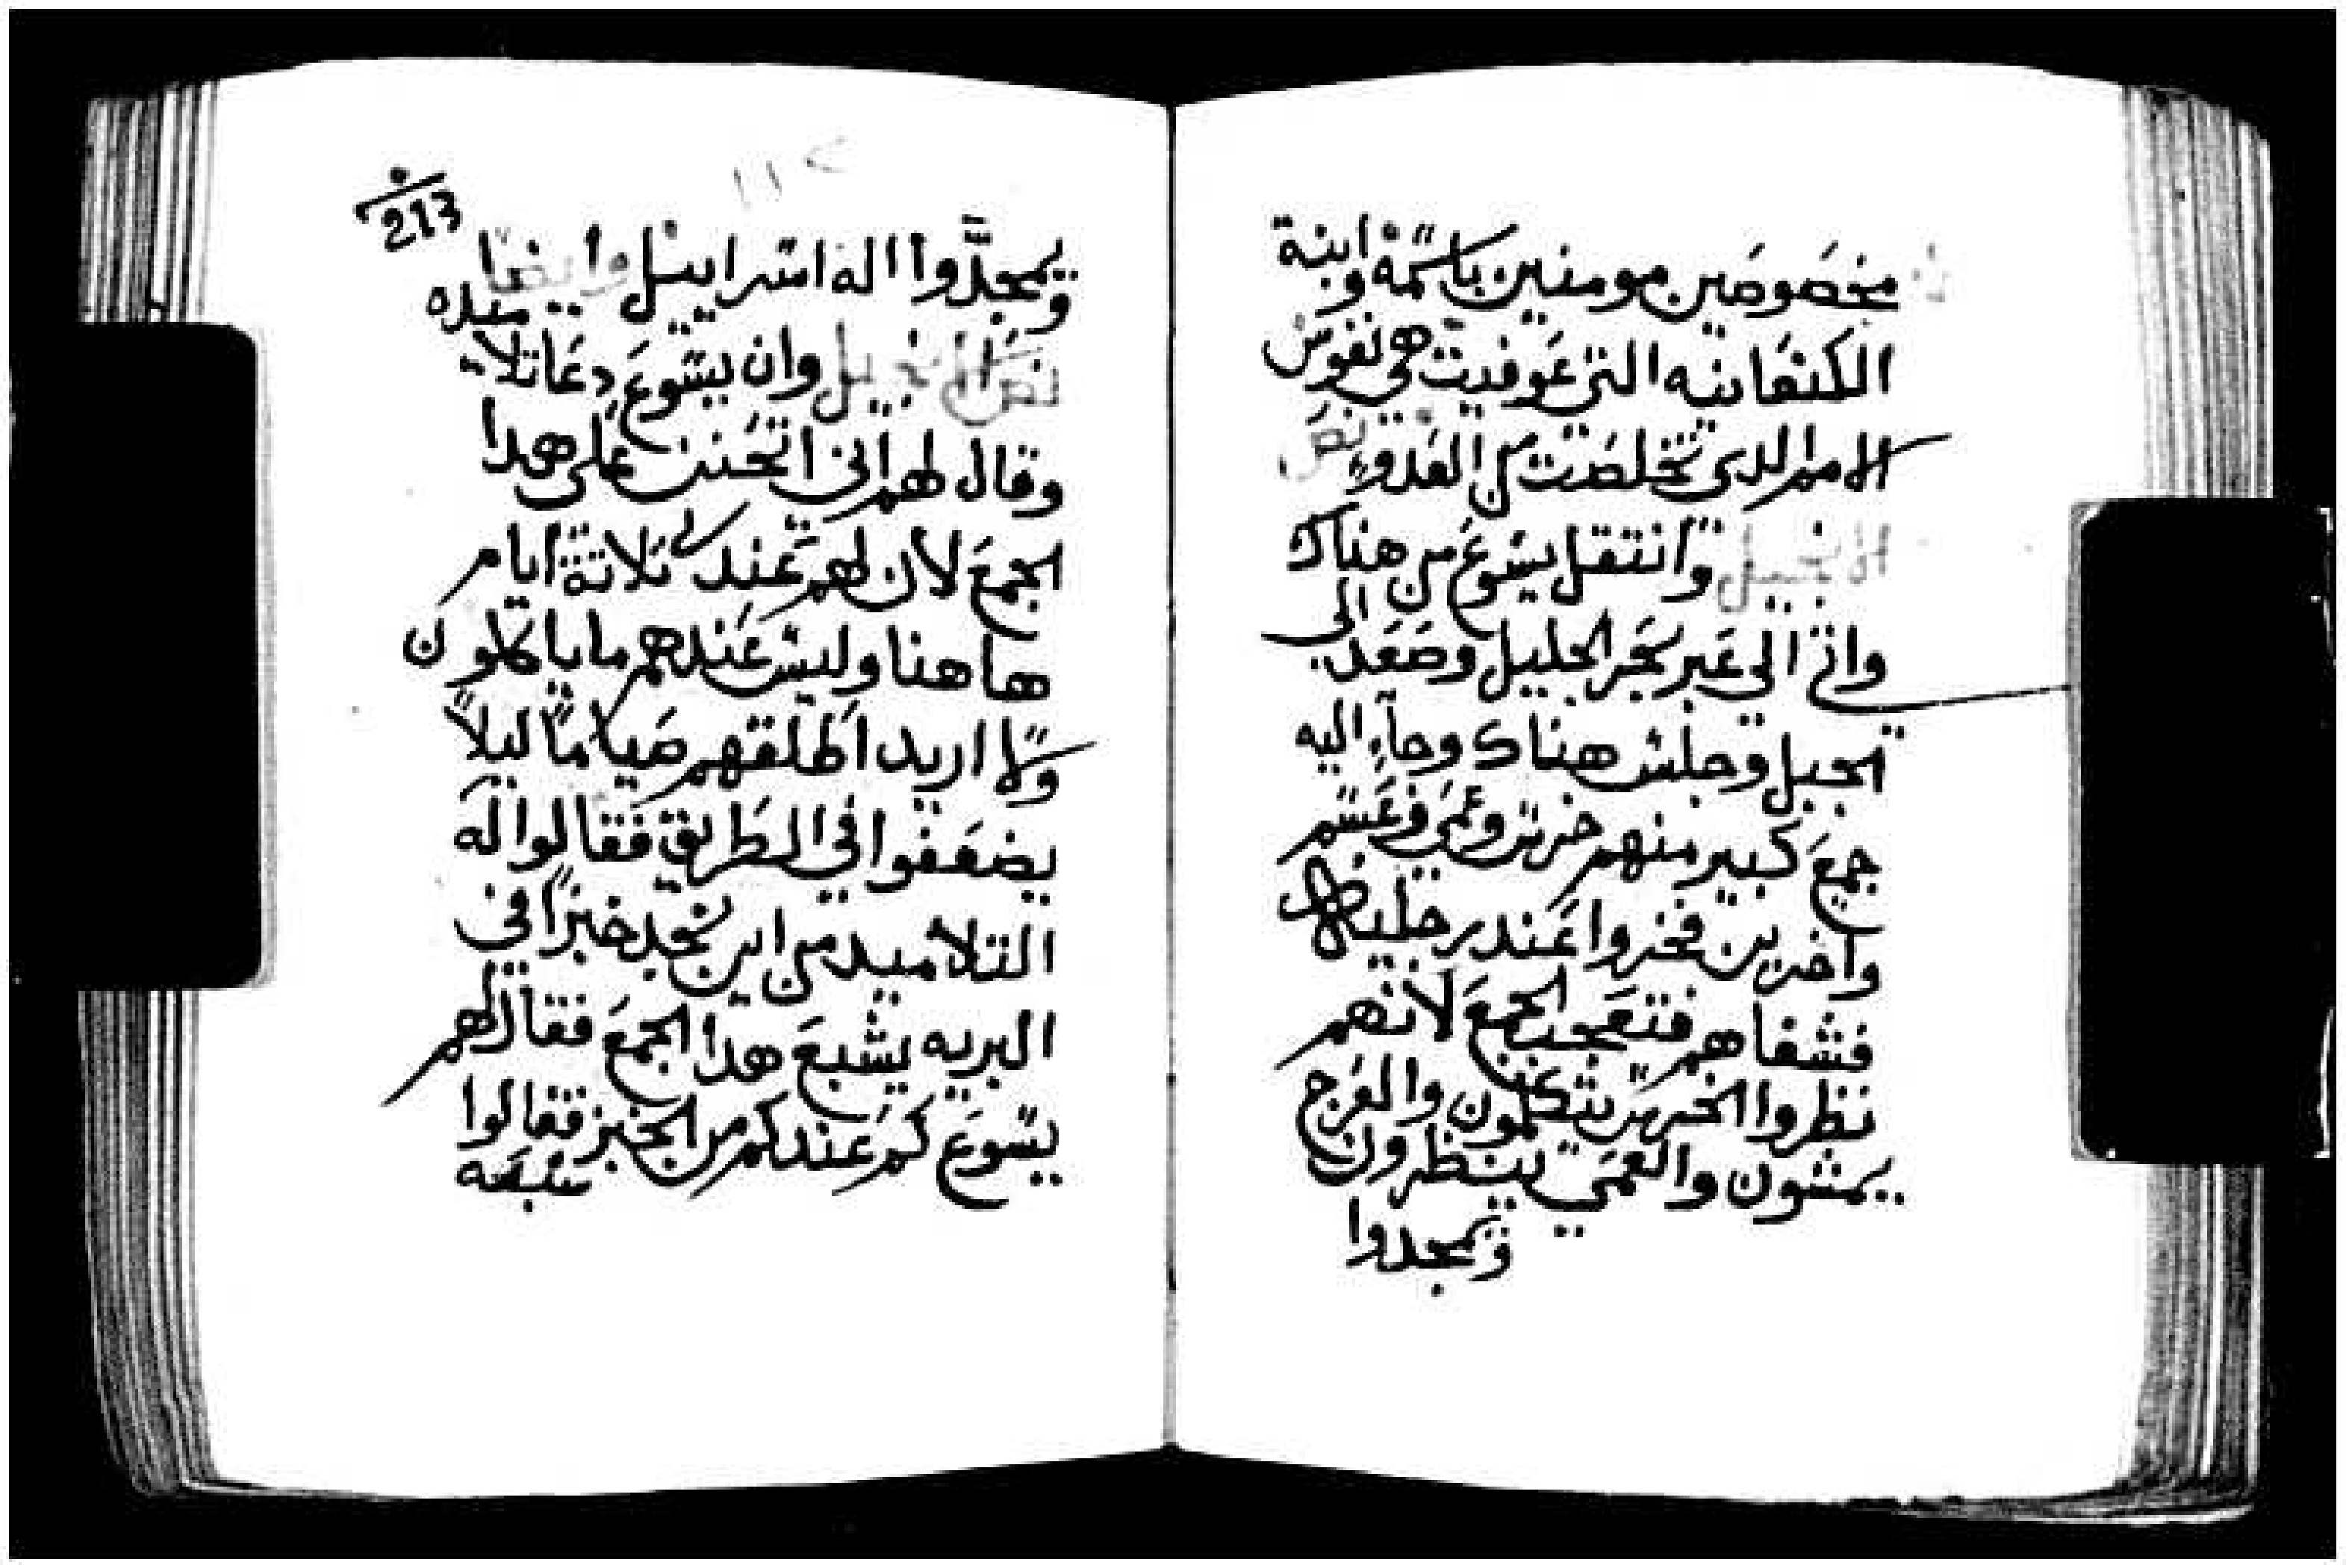 مخصوصين مومنين باسمه وابنة
الكنعانيه التي عوفيت هي نفوس
الامم الدي تخلصت من العدو نص
الانجيل وانتقل يسوع من هناك
واتي الي عبر بحر الجليل وصعد الى
الجبل وجلس هناك وجآء اليه
جمع كبير منهم خرس وعمي وعسم
واخرين فخروا عند رجليه
فشفاهم فتعجب الجمع لانهم
نظروا الخرس يتكلمون والعرج
يمشون والعمي ينظرون
ويمجدوا
213
ويمجدوا اله اسراييل وايضا
نص الانجيل وان يسوع دعا تلاميده
وقال لهم اني اتحنن على هدا
الجمع لان لهم عندي تلاتة ايام
هاهنا وليس عندهم ما ياكلون
ولا اريد اطلقهم صياماً ليلاً
يضعفوا في الطريق فقالوا له
التلاميد من اين نجد خبزاً في
البريه يشبع هدا الجمع فقال لهم
يسوع كم عندكم من الخبز فقالوا
سبعه